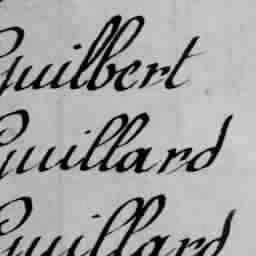 Guilbert
Guillard
Guillard